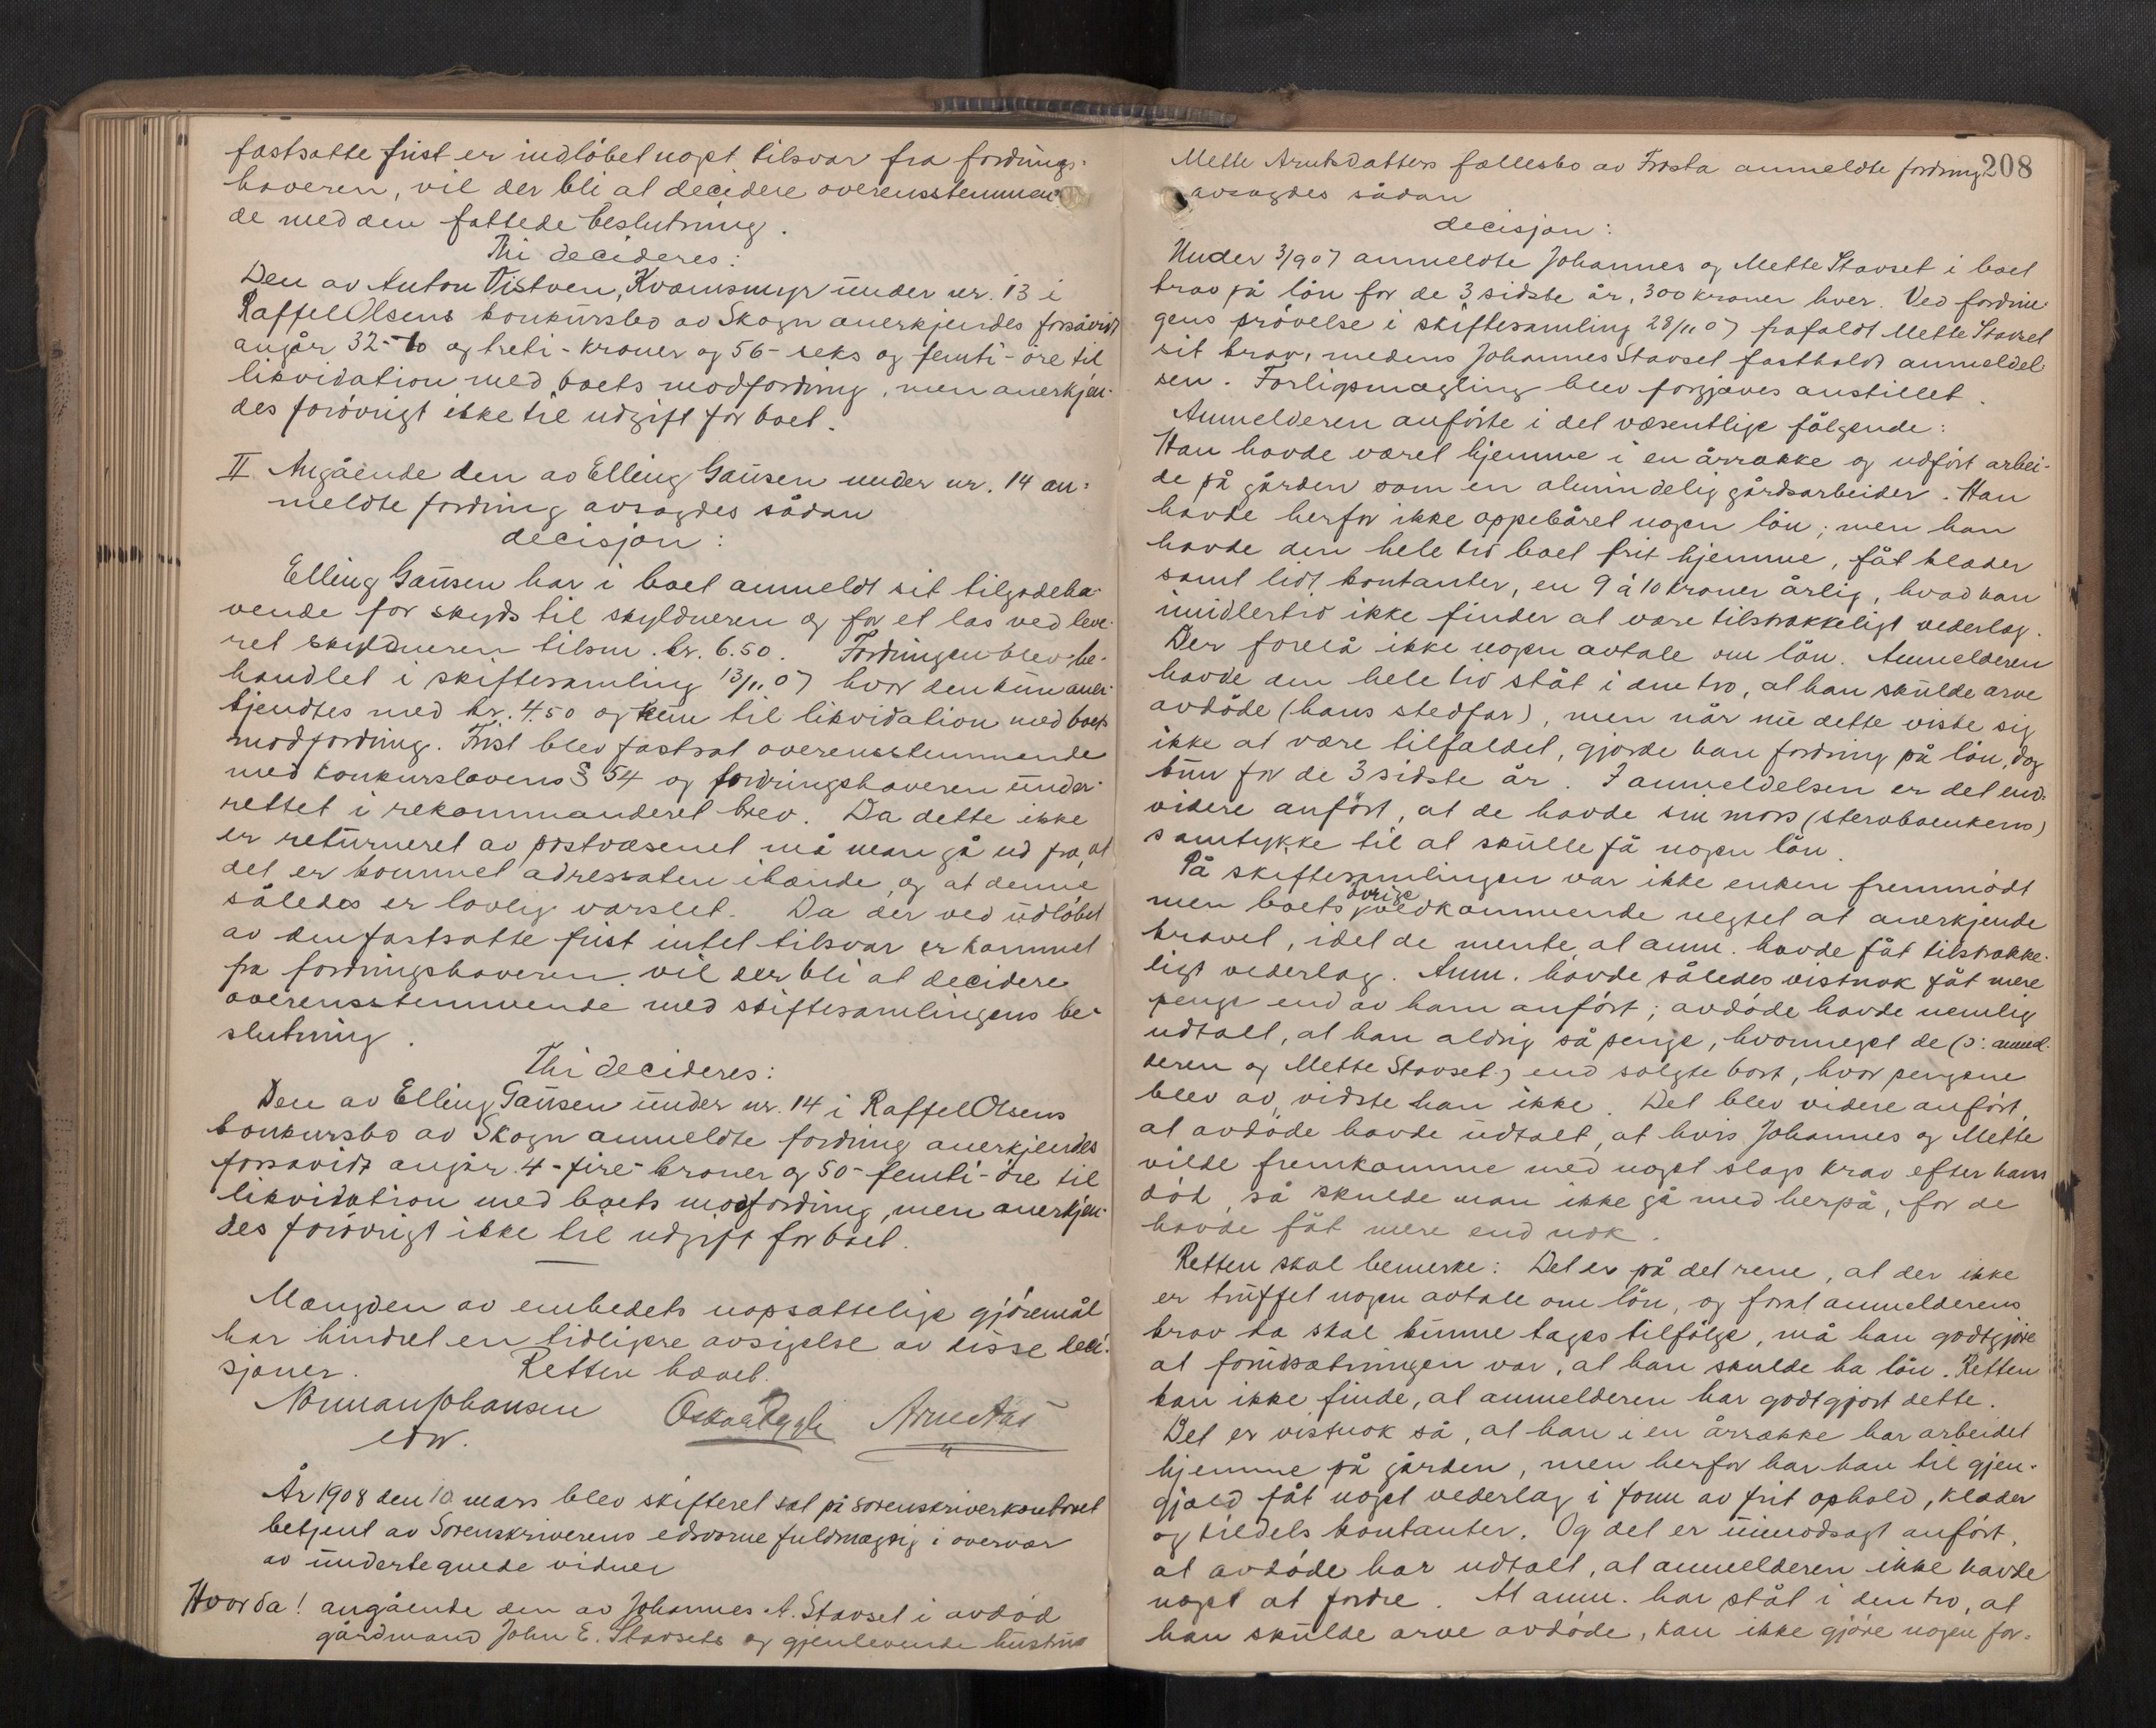 fastsatte frist er indlöbet noget tilsvar fra fordrings-
haveren, vil der bli at decidere overensstemmen-
de med den fattede beslutning.
Thi decideres:
Den av Anton Tistven, Kvamsmyr under nr. 13 i
Raffel Olsens konkursbo av Skogn anerkjendes forsåvidt
angår 32- to og treti- kroner og 56- seks og femti- öre til
likvidation med boets modfordring, men anerkjen-
des forövrigt ikke til udgift for boet.
II Angående den av Elling Gausen under nr. 14 an-
meldte fordring avsagdes sådan
decisjon:
Elling Gausen har i boet anmeldt sit tilgodeha-
vende for skyds til skyldneren og for et las ved leve-
ret skyldneren tilsm. kr. 6.50. Fordringen blev be-
handlet i skiftesamling 13/11 07 hvor den kun aner-
kjendtes med kr. 4.50 og kun til likvidation med boets
modfordring. Frist blev fastsat overensstemmende
med konkurslovens § 54 og fordringshaveren under-
rettet i rekommanderet brev. Da dette ikke
er returneret av postvæsenet må man gå ud fra, at
det er kommet adressaten ihænde, og at denne
således er lovlig varslet. Da der ved udlöbet
av den fastsatte frist intet tilsvar er kommet
fra fordringshaveren vil der bli at decidere
overensstemmende med skiftesamlingens be-
slutning.
Thi decideres:
Den av Elling Gausen under nr. 14 i Raffel Olsens
konkursbo av Skogn anmeldte fordring anerkjendes
forsavidt angår 4- fire- kroner og 50- femti- öre til
likvidation med boets modfordring, men anerkjen-
des forövrigt ikke til udgift for boet.
Mængden av embedets uopsættelige gjöremål
har hindret en tidligere avsigelse av disse deci-
sjoner. Retten hævet.
Norman Johansen Oskar Arne Aas
edsv.
År 1908 den 10 mars blev skifteret sat på sorenskriverkontoret
betjent av Sorenskriverens edsvorne fuldmægtig i overvær
av undertegnede vidner
Hvorda! angående den av Johannes A. Stavset i avdöd
gårdmand John E. Stavsets og gjenlevende hustru
208
Mette Arntsdatters fællesbo av Frosta anmeldte fordring
avsagdes sådan
decisjon:
Under 3/9 07 anmeldte Johannes og Mette Stavset i boet
krav på lön for de 3 sidste år, 300 kroner hver. Ved fordrin-
gens prövelse i skiftesamling 28/11 07 frafaldt Mette Stavset
sit krav, medens Johannes Stavset fastholdt anmeldel-
sen. Forligsmægling blev forgjæves anstillet.
Anmelderen anförte i det væsentlige fölgende:
Han havde været hjemme i en årrække og udfört arbei-
de på gården som en almindelig gårdsarbeider. Han
havde herfor ikke oppebåret nogen lön; men han
havde den hele tid boet frit hjemme, fåt klæder
samt lidt kontanter, en 9 à 10 kroner årlig, hvad han
imidlertid ikke finder at være tilstrækkeligt vederlag.
Der forelå ikke nogen avtale om lön. Anmelderen
havde den hele tid ståt i den tro, at han skulde arve
avdöde (hans stedfar), men når nu dette viste sig
ikke at være tilfældet, gjorde han fordring på lön, dog
kun for de 3 sidste år. I anmeldelsen er det end-
videre anfört, at de havde sin mors (stervboenkens)
samtykke til at skulle få nogen lön.
På skiftesamlingen var ikke enken fremmödt
men boets övrige vedkommende negtet at anerkjende
kravet, idet de mente, at anm. havde fåt tilstrække-
ligt vederlag. Anm. havde således vistnok fåt mere
penge end av ham anfört; avdöde havde nemlig
udtalt, at han aldrig så penge, hvormeget de (ɔ: anmel-
deren og Mette Stavset) end solgte bort, hvor pengene
blev av, vidste han ikke. Det blev videre anfört,
at avdöde havde udtalt, at hvis Johannes og Mette
vilde fremkomme med noget slags krav efter hans
död, så skulde man ikke gå med herpå, for de
havde fåt mere end nok.
Retten skal bemerke: Det er på det rene, at der ikke
er truffet nogen avtale om lön, og forat anmelderens
krav da skal kunne tages tilfölge, må han godtgjöre
at forudsætningen var, at han skulde ha lön. Retten
kan ikke finde, at anmelderen har godtgjort dette.
Det er vistnok så, at han i en årrække har arbeidet
hjemme på gården, men herfor har han til gjen-
gjæld fåt noget vederlag i form av frit ophold, klæder
og tildels kontanter. Og det er uimodsagt anfört,
at avdöde har udtalt, at anmelderen ikke havde
noget at fordre. At anm. har ståt i den tro, at
han skulde arve avdöde, kan ikke gjöre nogen for-